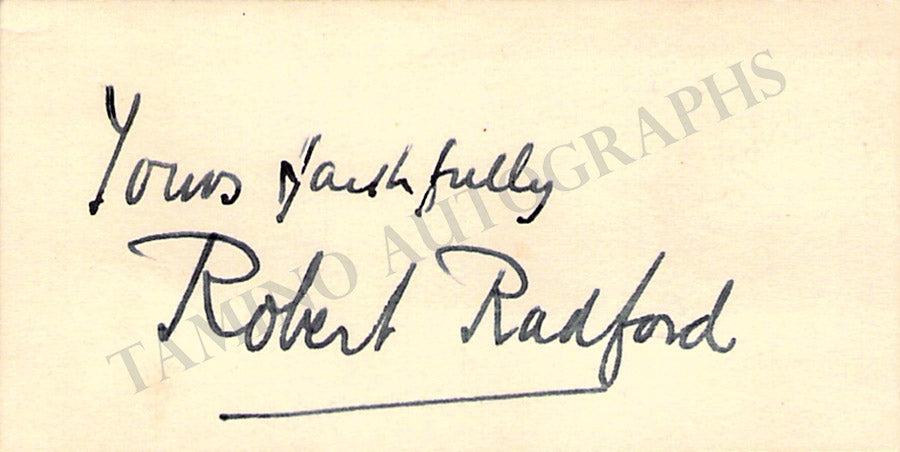 Yours faithfully
Robert Radford
TAMINO AUTOGRAPHS